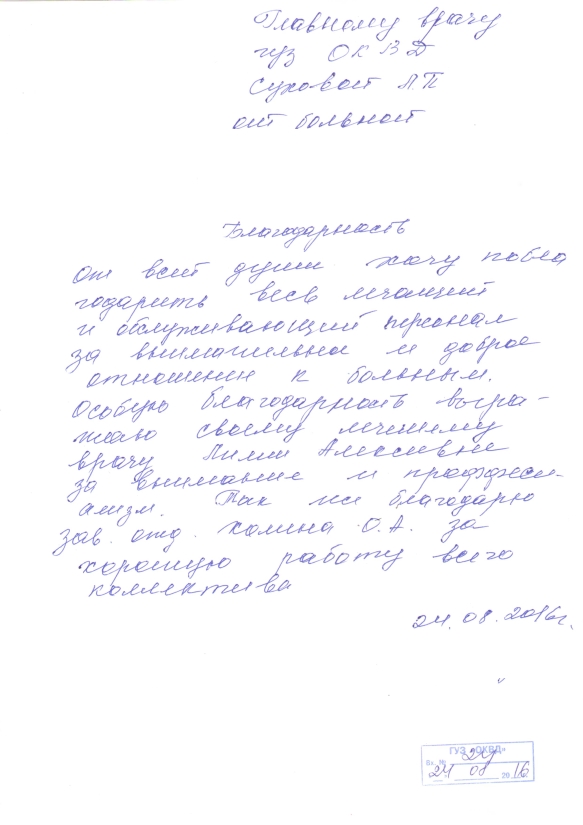 Главному врачу
гуз ОКВД
Суховой Л П
от больной
Благодарность
От всей души хочу побла
годарить весь лечащий
и обслуживающий персонал
за внимательное и доброе
отношение к больным.
Особую благодарность выра-
жаю своему лечащему
врачу Лилии Алексеевне
за внимание и професси-
ализм. Так же благодарю
зав. отд. Халина О.А. за
хорошую работу всего
коллектива
24.08.2016г.
ГУЗ «ОКВД»
Вх. №
24 08 2016